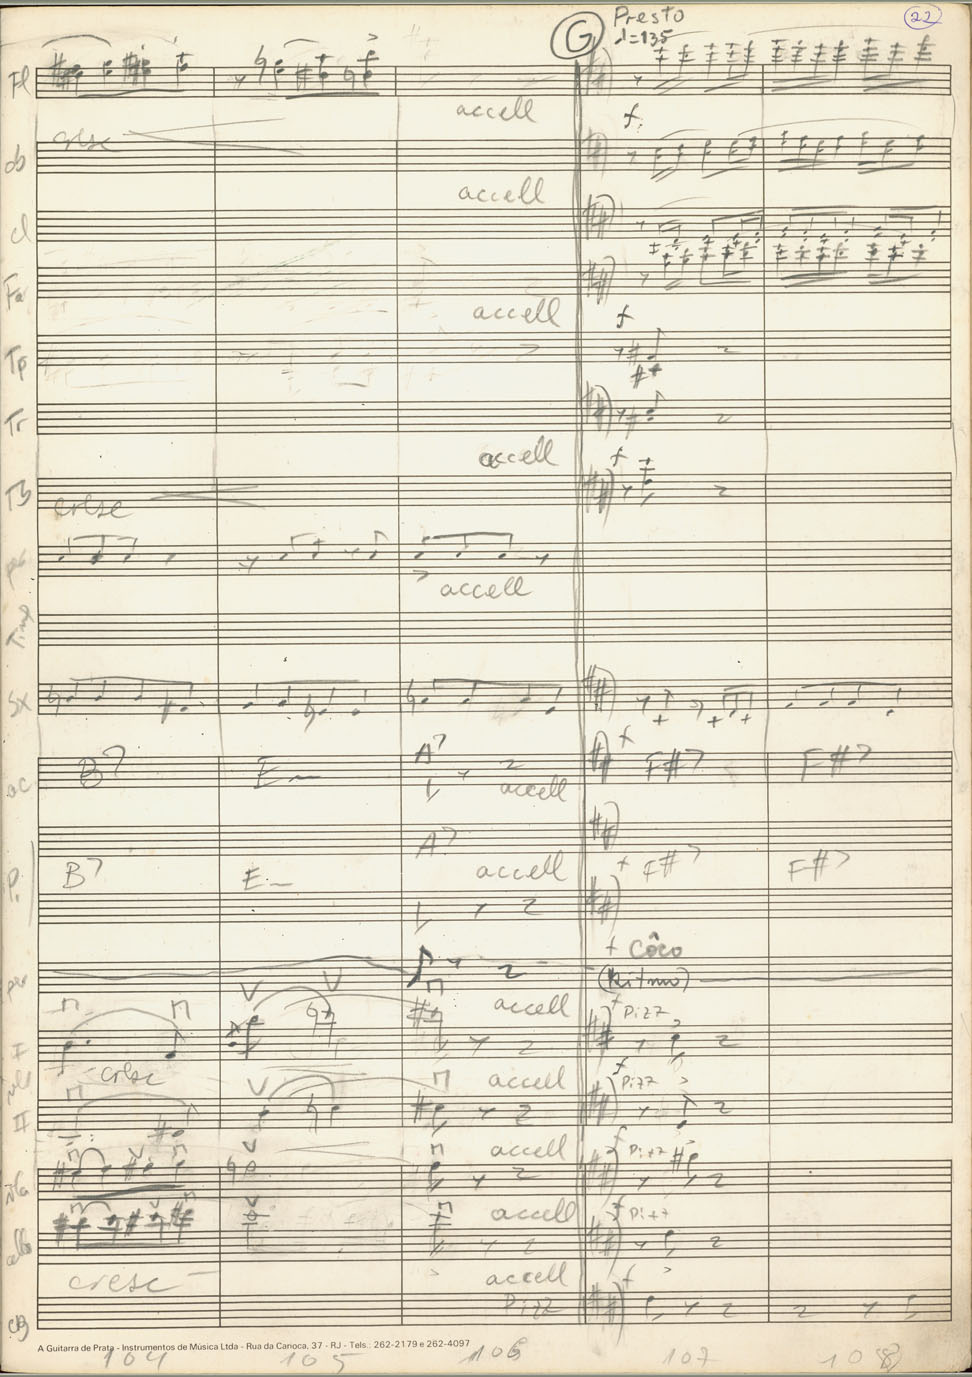 G Presto 22
♩=135
Fl
accell
f
cresc
ob
accell
cl
Fa
accell f
Tp
Tr
accell f
Tb
cresc
accell
Timp
Sx
f
B7 E- A7 F#7 F#7
ac
accell
A7
B7 E- accell f F#7 F#7
P.
f Côco
per
(Ritmo)
accell f Pizz
I
cresc
accell f Pizz
II
accell f Pizz
vla
accell f Pizz
cello
cresc accell f
Pizz
CB
A Guitarra de Prata - Instrumentos de Música Ltda - Rua da Carioca, 37 - RJ - Tels.: 262-2179 e 262-4097
104 105 106 107 108